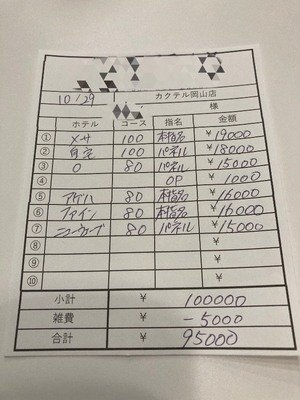 カクテル岡山店
10/29
様
ホテル コース 指名 金額
① メサ 100 本指名 ¥19000
② 自宅 100 パネル ¥18000
③ O 80 パネル ¥15000
④ OP ¥1000
⑤ アゲハ 80 本指名 ¥16000
⑥ ファイン 80 本指名 ¥16000
⑦ ニューウェーブ 80 パネル ¥15000
⑧ ¥
⑨ ¥
⑩ ¥
小計 ¥ 100000
雑費 ¥ -5000
合計 ¥ 95000